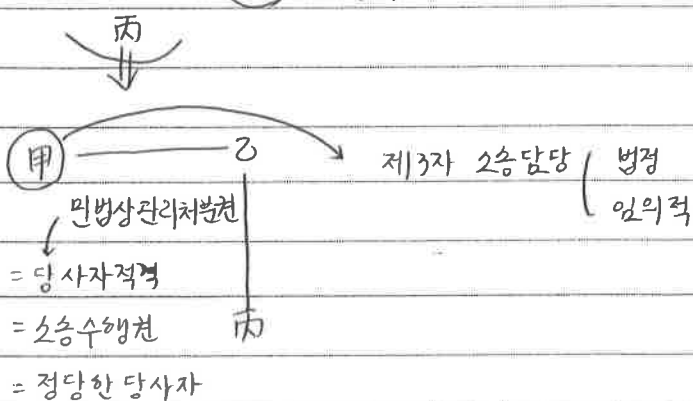 丙
甲 乙 제3자 소송담당 ( 법정
임의적
민법상관리처분권
= 당사자적격
= 소송수행권 丙
= 정당한 당사자